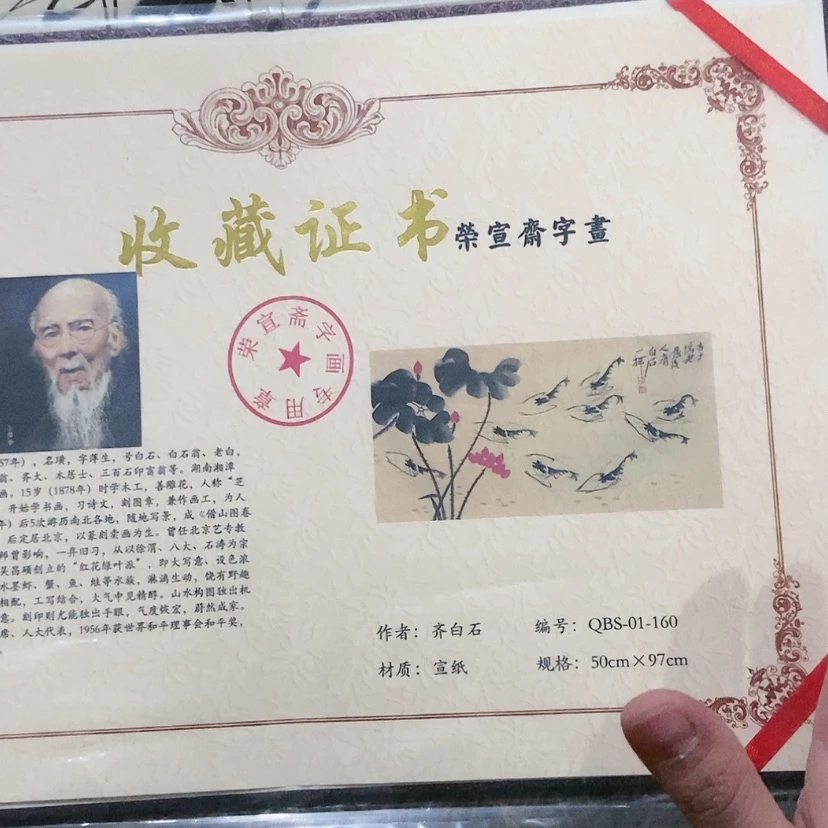 收藏证书 榮宣齋字畫
荣宣斋字画专用章
57年），名璜，字萍生，号白石、白石翁、老白，
翁、齐大、木居士、三百石印富翁等。湖南湘潭
画。15岁（1878年）时学木工，善雕花，人称“芝
开始学书画，习诗文，刻图章，兼作画工，为人
年）后5次游历南北各地，随地写景，成《借山图卷
后定居北京，以篆刻卖画为生。曾任北京艺专教
师曾影响，一弃旧习，从以徐渭、八大、石涛为宗
吴昌硕创立的“红花绿叶派”，即大写意、设色浓
水墨虾、蟹、鱼、蛙等水族，淋漓生动，饶有野趣
相配，工写结合，大气中见精醇。山水构图独出机
意。刻印则尤能独出手眼，气度恢宏，蔚然成家。
席、人大代表，1956年获世界和平理事会和平奖，
白石
一挥
作者：齐白石 编号：QBS-01-160
材质：宣纸 规格：50cm×97cm